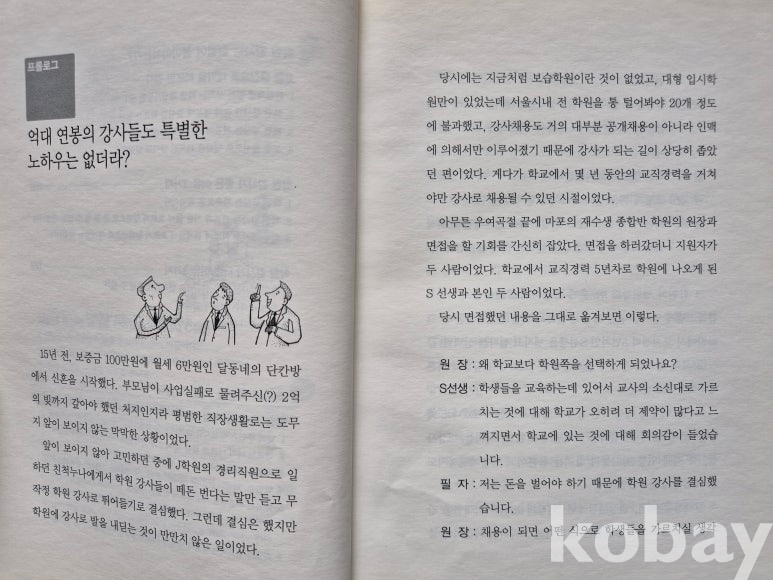 프롤로그
억대 연봉의 강사들도 특별한
노하우는 없더라?
15년 전, 보증금 100만원에 월세 6만원인 달동네의 단칸방
에서 신혼을 시작했다. 부모님이 사업실패로 물려주신(?) 2억
의 빚까지 갚아야 했던 처지인지라 평범한 직장생활로는 도무
지 앞이 보이지 않는 막막한 상황이었다.
앞이 보이지 않아 고민하던 중에 J학원의 경리직원으로 일
하던 친척누나에게서 학원 강사들이 떼돈 번다는 말만 듣고 무
작정 학원 강사로 뛰어들기로 결심했다. 그런데 결심은 했지만
학원에 강사로 발을 내딛는 것이 만만치 않은 일이었다.
당시에는 지금처럼 보습학원이란 것이 없었고, 대형 입시학
원만이 있었는데 서울시내 전 학원을 통 털어봐야 20개 정도
에 불과했고, 강사채용도 거의 대부분 공개채용이 아니라 인맥
에 의해서만 이루어졌기 때문에 강사가 되는 길이 상당히 좁았
던 편이었다. 게다가 학교에서 몇 년 동안의 교직경력을 거쳐
야만 강사로 채용될 수 있던 시절이었다.
아무튼 우여곡절 끝에 마포의 재수생 종합반 학원의 원장과
면접을 할 기회를 간신히 잡았다. 면접을 하러갔더니 지원자가
두 사람이었다. 학교에서 교직경력 5년차로 학원에 나오게 된
S 선생과 본인 두 사람이었다.
당시 면접했던 내용을 그대로 옮겨보면 이렇다.
원 장 : 왜 학교보다 학원쪽을 선택하게 되었나요?
S선생 : 학생들을 교육하는데 있어서 교사의 소신대로 가르
치는 것에 대해 학교가 오히려 더 제약이 많다고 느
껴지면서 학교에 있는 것에 대해 회의감이 들었습
니다.
필 자 : 저는 돈을 벌어야 하기 때문에 학원 강사를 결심했
습니다.
원 장 : 채용이 되면 어떤 식으로 학생들을 가르치실 생각
kobay